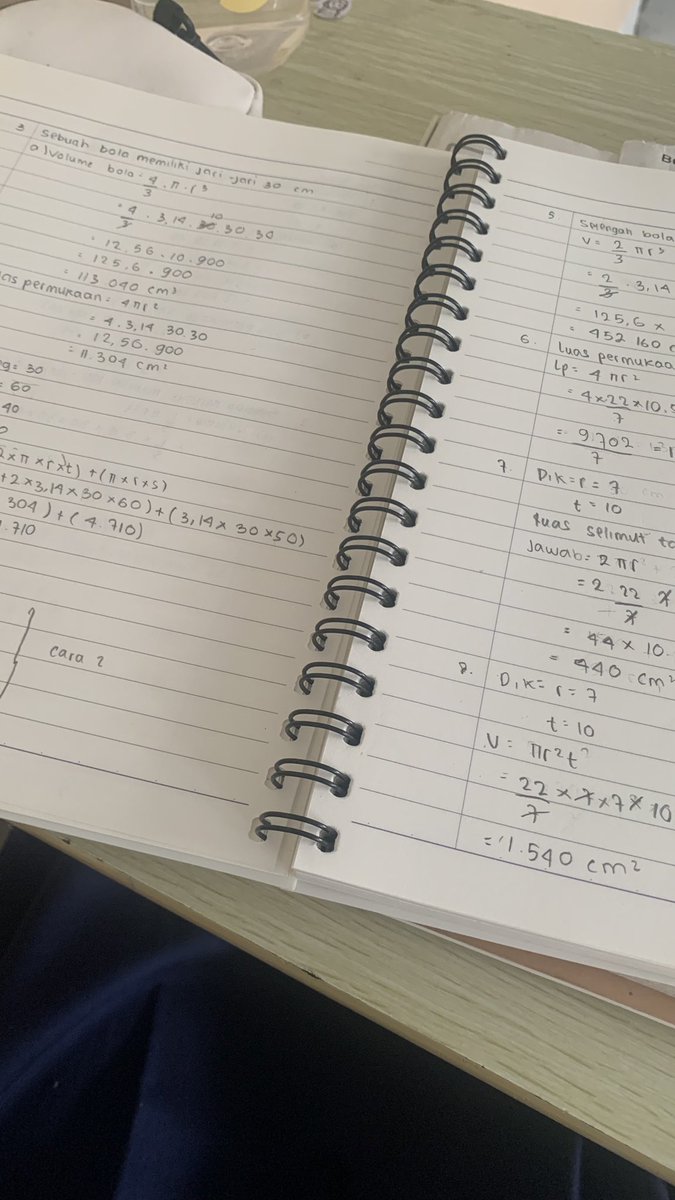 3 Sebuah bola memiliki jari-jari 30 cm
a) Volume bola = 4/3 . π . r³
= 4/3 . 3,14 . 30 10 . 30 . 30
= 12,56 . 10 . 900
= 125,6 . 900
= 113 040 cm³
permukaan = 4πr²
= 4 . 3,14 30.30
= 12,56 . 900
= 11.304 cm²
= 30
= 60
40
2 × π × r × t) + (π × r × s)
+ 2 × 3,14 × 30 × 60) + (3,14 × 30 × 50)
304) + (4.710)
.710
cara 2
5. Setengah bola
V = 2/3 πr³
= 2/3 . 3,14
= 125,6 ×
= 452 160
6. Luas
Lp = 4 πr²
= 4×22×10.5/7
= 9.702/7 =
7. Dik = r = 7 cm
t = 10
Luas selimut
Jawab = 2 πr
= 2 . 22/7 7
= 44 × 10
= 440 cm²
8. Dik = r = 7
t = 10
V = πr²t
= 22/7 × 7 × 7 × 10
= 1.540 cm²